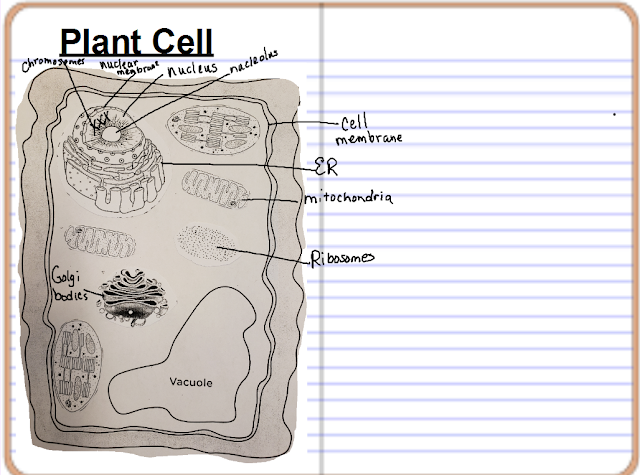 Plant Cell
chromosomes
nuclear
membrane
nucleus
nucleolus
cell
membrane
ER
mitochondria
Ribosomes
Golgi
bodies
Vacuole